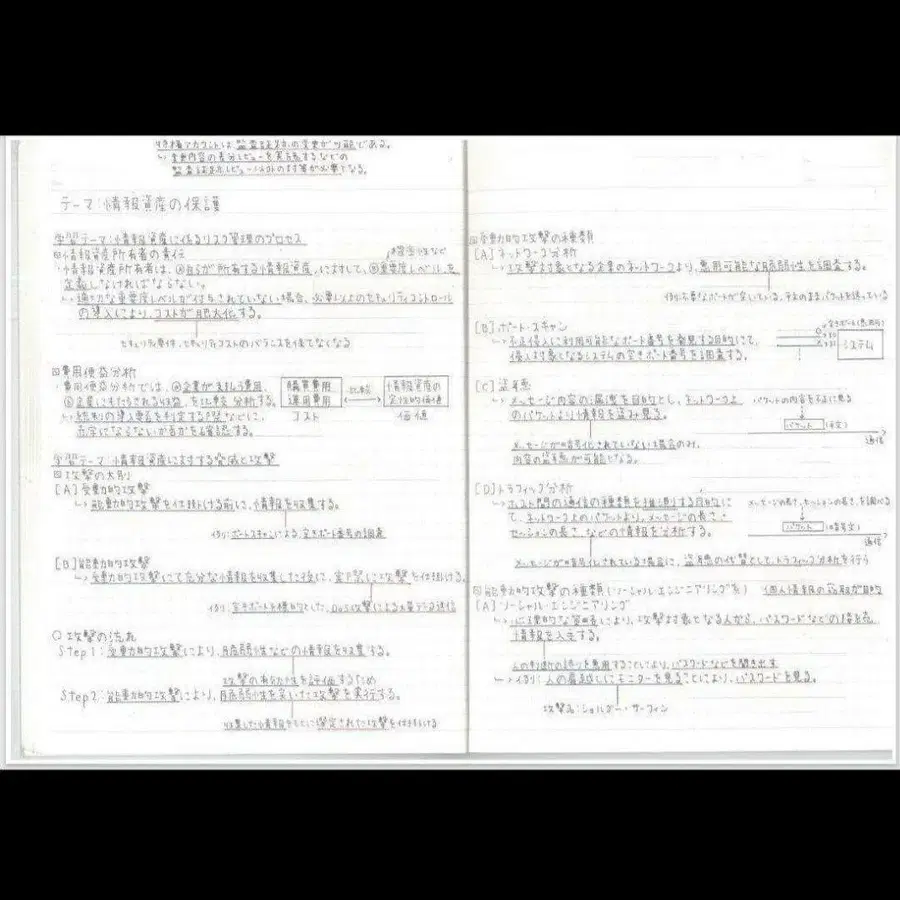 特権アカウントは監査証跡の変更が可能である。
↳ 変更内容の差分レビューを実施するなどの
監査証跡レビュー の対策が必要となる。
テーマ:情報資産の保護
学習テーマ:情報資産に係るリスク管理のプロセス
回情報資産所有者の責任
機密性など
・情報資産所有者は、Ⓐ自らが所有する情報資産 に対して、Ⓑ重要度レベル を
定義しなければならない。
↳ 適切な重要度レベルが付与されていない場合、必要以上のセキュリティコントロール
の導入により、コストが肥大化する。
セキュリティ要件、セキュリティコストのバランスを保てなくなる
回費用便益分析
・費用便益分析では、Ⓐ企業が支払う費用、
Ⓑ企業にもたらされる収益 を比較 分析する。
↳ 統制の導入要否を判定する際などに、
赤字にならないか否かを確認する。
購買費用
運用費用
比較
情報資産の
定性的価値
コスト
価値
学習テーマ:情報資産に対する脅威と攻撃
回攻撃の大別
[A]受動的攻撃
↳ 能動的攻撃を仕掛ける前に、情報を収集する。
例)ポートスキャンによる、空きポート番号の調査
[B]能動的攻撃
↳ 受動的攻撃にて充分な情報を収集した後に、実際に攻撃を仕掛ける。
例)空きポートを標的とした、DoS攻撃による大量データ送信
○ 攻撃の流れ
Step1:受動的攻撃により、脆弱性などの情報を収集する。
攻撃の有効性を評価するため
Step2:能動的攻撃により、脆弱性を突いた攻撃を実行する。
収集した情報をもとに選定された攻撃を仕掛ける
回受動的攻撃の種類
[A]ネットワーク分析
↳ 攻撃対象となる企業のネットワークより、悪用可能な脆弱性を調査する。
例)不要なポートが空いている、平文のままパケットを送っている
[B]ポート・スキャン
↳ 不正侵入に利用可能なポート番号を発見する目的にて、
侵入対象となるシステムの空きポート番号を調査する。
空きポート(悪用可)
システム
[C]盗聴
↳ メッセージ内容の漏洩を目的とし、ネットワーク上
のパケットより情報を盗み見る。
メッセージが暗号化されていない場合のみ、
内容の盗聴が可能となる。
パケットの内容を盗に見る
パケット (平文)
通信
[D]トラフィック分析
↳ ホスト間の通信の種類を推測する目的に
て、ネットワーク上のパケットより、メッセージの長さ・
セッションの長さ などの情報を分析する。
メッセージが暗号化されている場合に、盗聴の代替としてトラフィック分析を行う
メッセージの長さ、セッションの長さ、を調べる
パケット (暗号文)
通信
回能動的攻撃の種類(ソーシャル・エンジニアリング系) 個人情報の窃取が目的
[A]ソーシャル・エンジニアリング
↳ 心理的な により、攻撃対象となる人から、パスワードなどの
情報を入手する。
人の判断の誤りを悪用することにより、パスワードなどを聞き出す
↳ 例)人の肩越しにモニターを見ることにより、パスワードを見る。
攻撃名:ショルダー・サーフィン